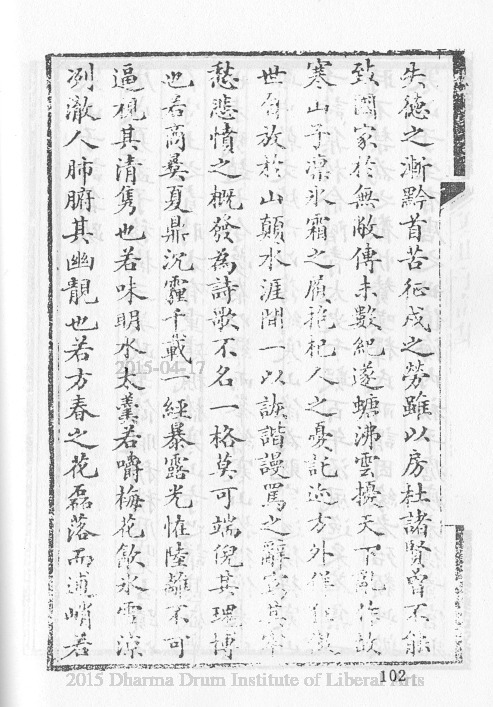 失德之漸黔首苦征戍之勞雖以房杜諸賢曾不能
致國家於無敝傳未數紀遂螗沸雲擾天下亂作故
寒山子凜氷霜之履抱杞人之憂託迹方外佯狂
世自放於山顛水涯間一以詼諧謾罵之辭寓其牢
愁悲憤之概發為詩歌不名一格莫可端倪其瑰博
也若商彛夏鼎沉霾千載一經暴露光怪陸離不可
逼視其清雋也若咮明水太羹若嚼梅花飲氷雪凉
冽澈人肺腑其幽靚也若方春之花磊落而逋峭若
2015-04-17
102
2015 Dharma Drum Institute of Liberal Arts